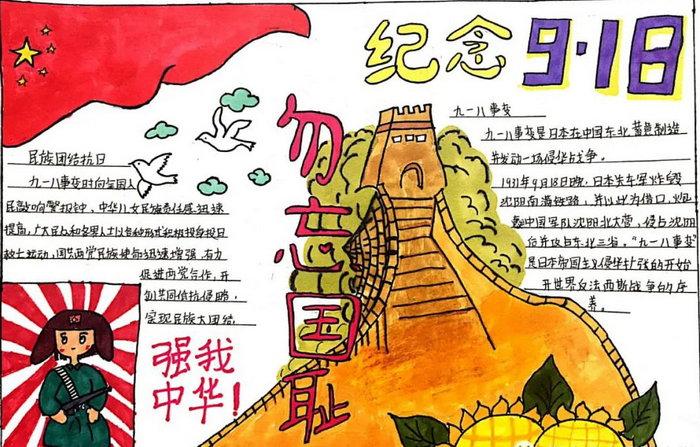 纪念9·18
勿忘国耻
民族团结抗日
九一八事变时向全国人
民敲响警报钟,中华儿女民族责任感迅速
提高,广大民众和各界人士以各种形式积极投身抗日
救亡运动,国共两党民族使命迅速增强,有力
促进两党合作,开
始共同抵抗侵略,
实现民族大团结.
强我
中华!
九一八事变
九一八事变是日本在中国东北蓄意制造
并发动一场侵华战争.
1931年9月18日晚,日本关东军炸毁
沈阳南满铁路,并以此为借口,炮
轰中国军队沈阳北大营,侵占沈阳
后并攻占东北三省."九一八事变"
是日本帝国主义侵华扩张的开始
开世界反法西斯战争的序
养.